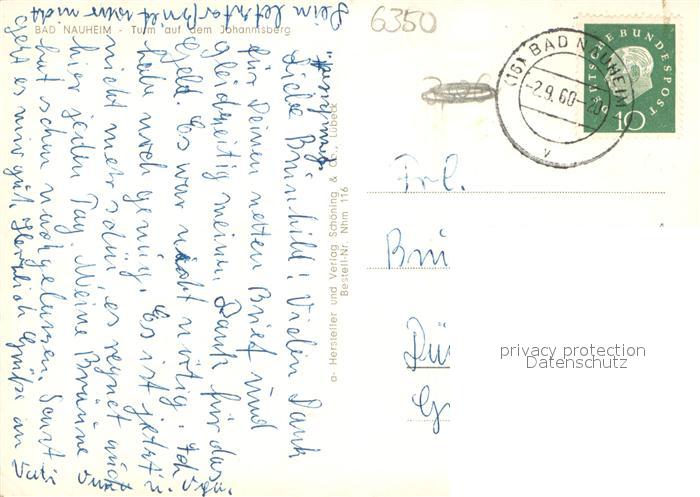 BAD NAUHEIM - Turm auf dem Johannisberg
Liebe Brünhild! Vielen Dank
für Deinen netten Brief und
gleichzeitig meinen Dank für das
Geld. Es war nicht nötig. Ich
habe noch genug. Es ist jetzt
nicht mehr schön, es regnet auch
hier jeden Tag. Meine Bräune
hat schon nachgelassen. Sonst
geht es mir gut. Herzlich Grüße an
Vati
a- Hersteller und Verlag Schöning & Co., Lübeck
Bestell-Nr. Nhm 116
6350
(16) BAD NAUHEIM
-2.9.60-20
v
DEUTSCHE BUNDESPOST
10
Frl.
Brü
Dü
G
privacy protection
Datenschutz